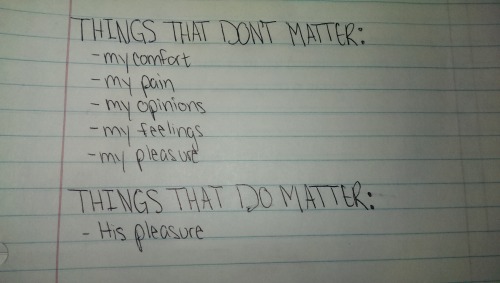 THINGS THAT DONT MATTER:
- my comfort
- my pain
- my opinions
- my feelings
- my pleasure
THINGS THAT DO MATTER:
- His pleasure